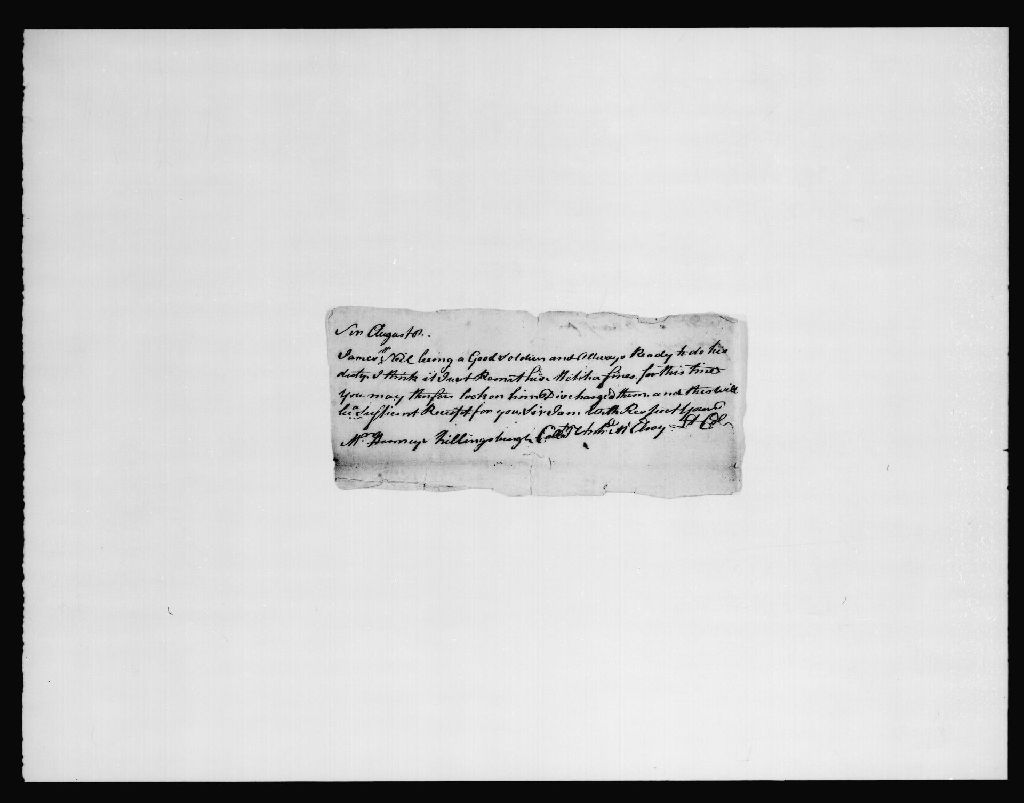 Sir August 8.
James McNeil being a Good Soldier and Always Ready to do his
duty. I think it Just Remit his Militia fines for this time
You may therfore look on him Discharged them and this will
be a Suffient Receipt for you Sir I am with Respect yours
Mr. Killingsburgh Collr. McElroy Lt Col.